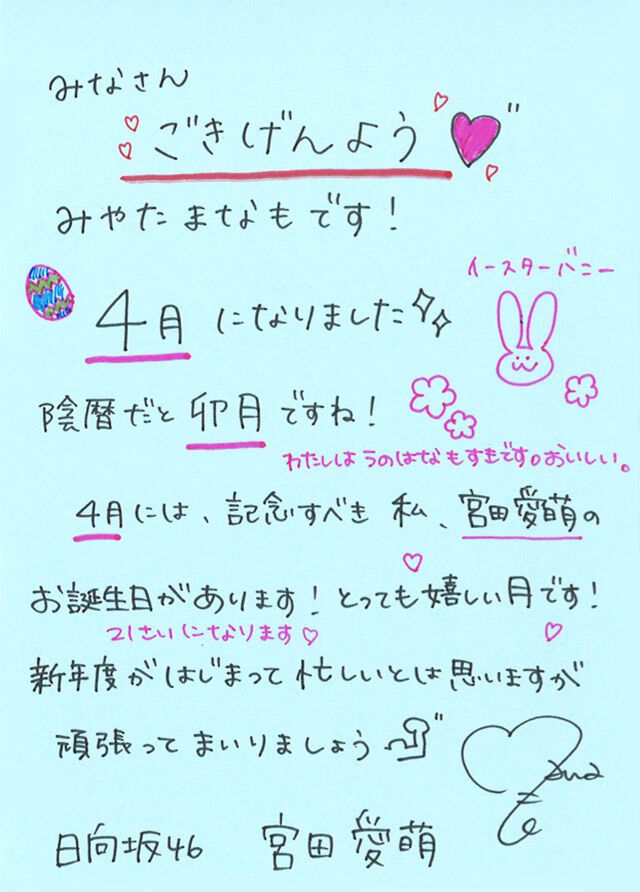 みなさん
ごきげんよう
みやたまなもです！
イースターバニー
4月になりました
陰暦だと卯月ですね！
わたしはうのはなもすきです。おいしい。
4月には、記念すべき私、宮田愛萌の
お誕生日があります！とっても嬉しい月です！
21さいになります♡
新年度がはじまって忙しいとは思いますが
頑張ってまいりましょう
日向坂46 宮田愛萌